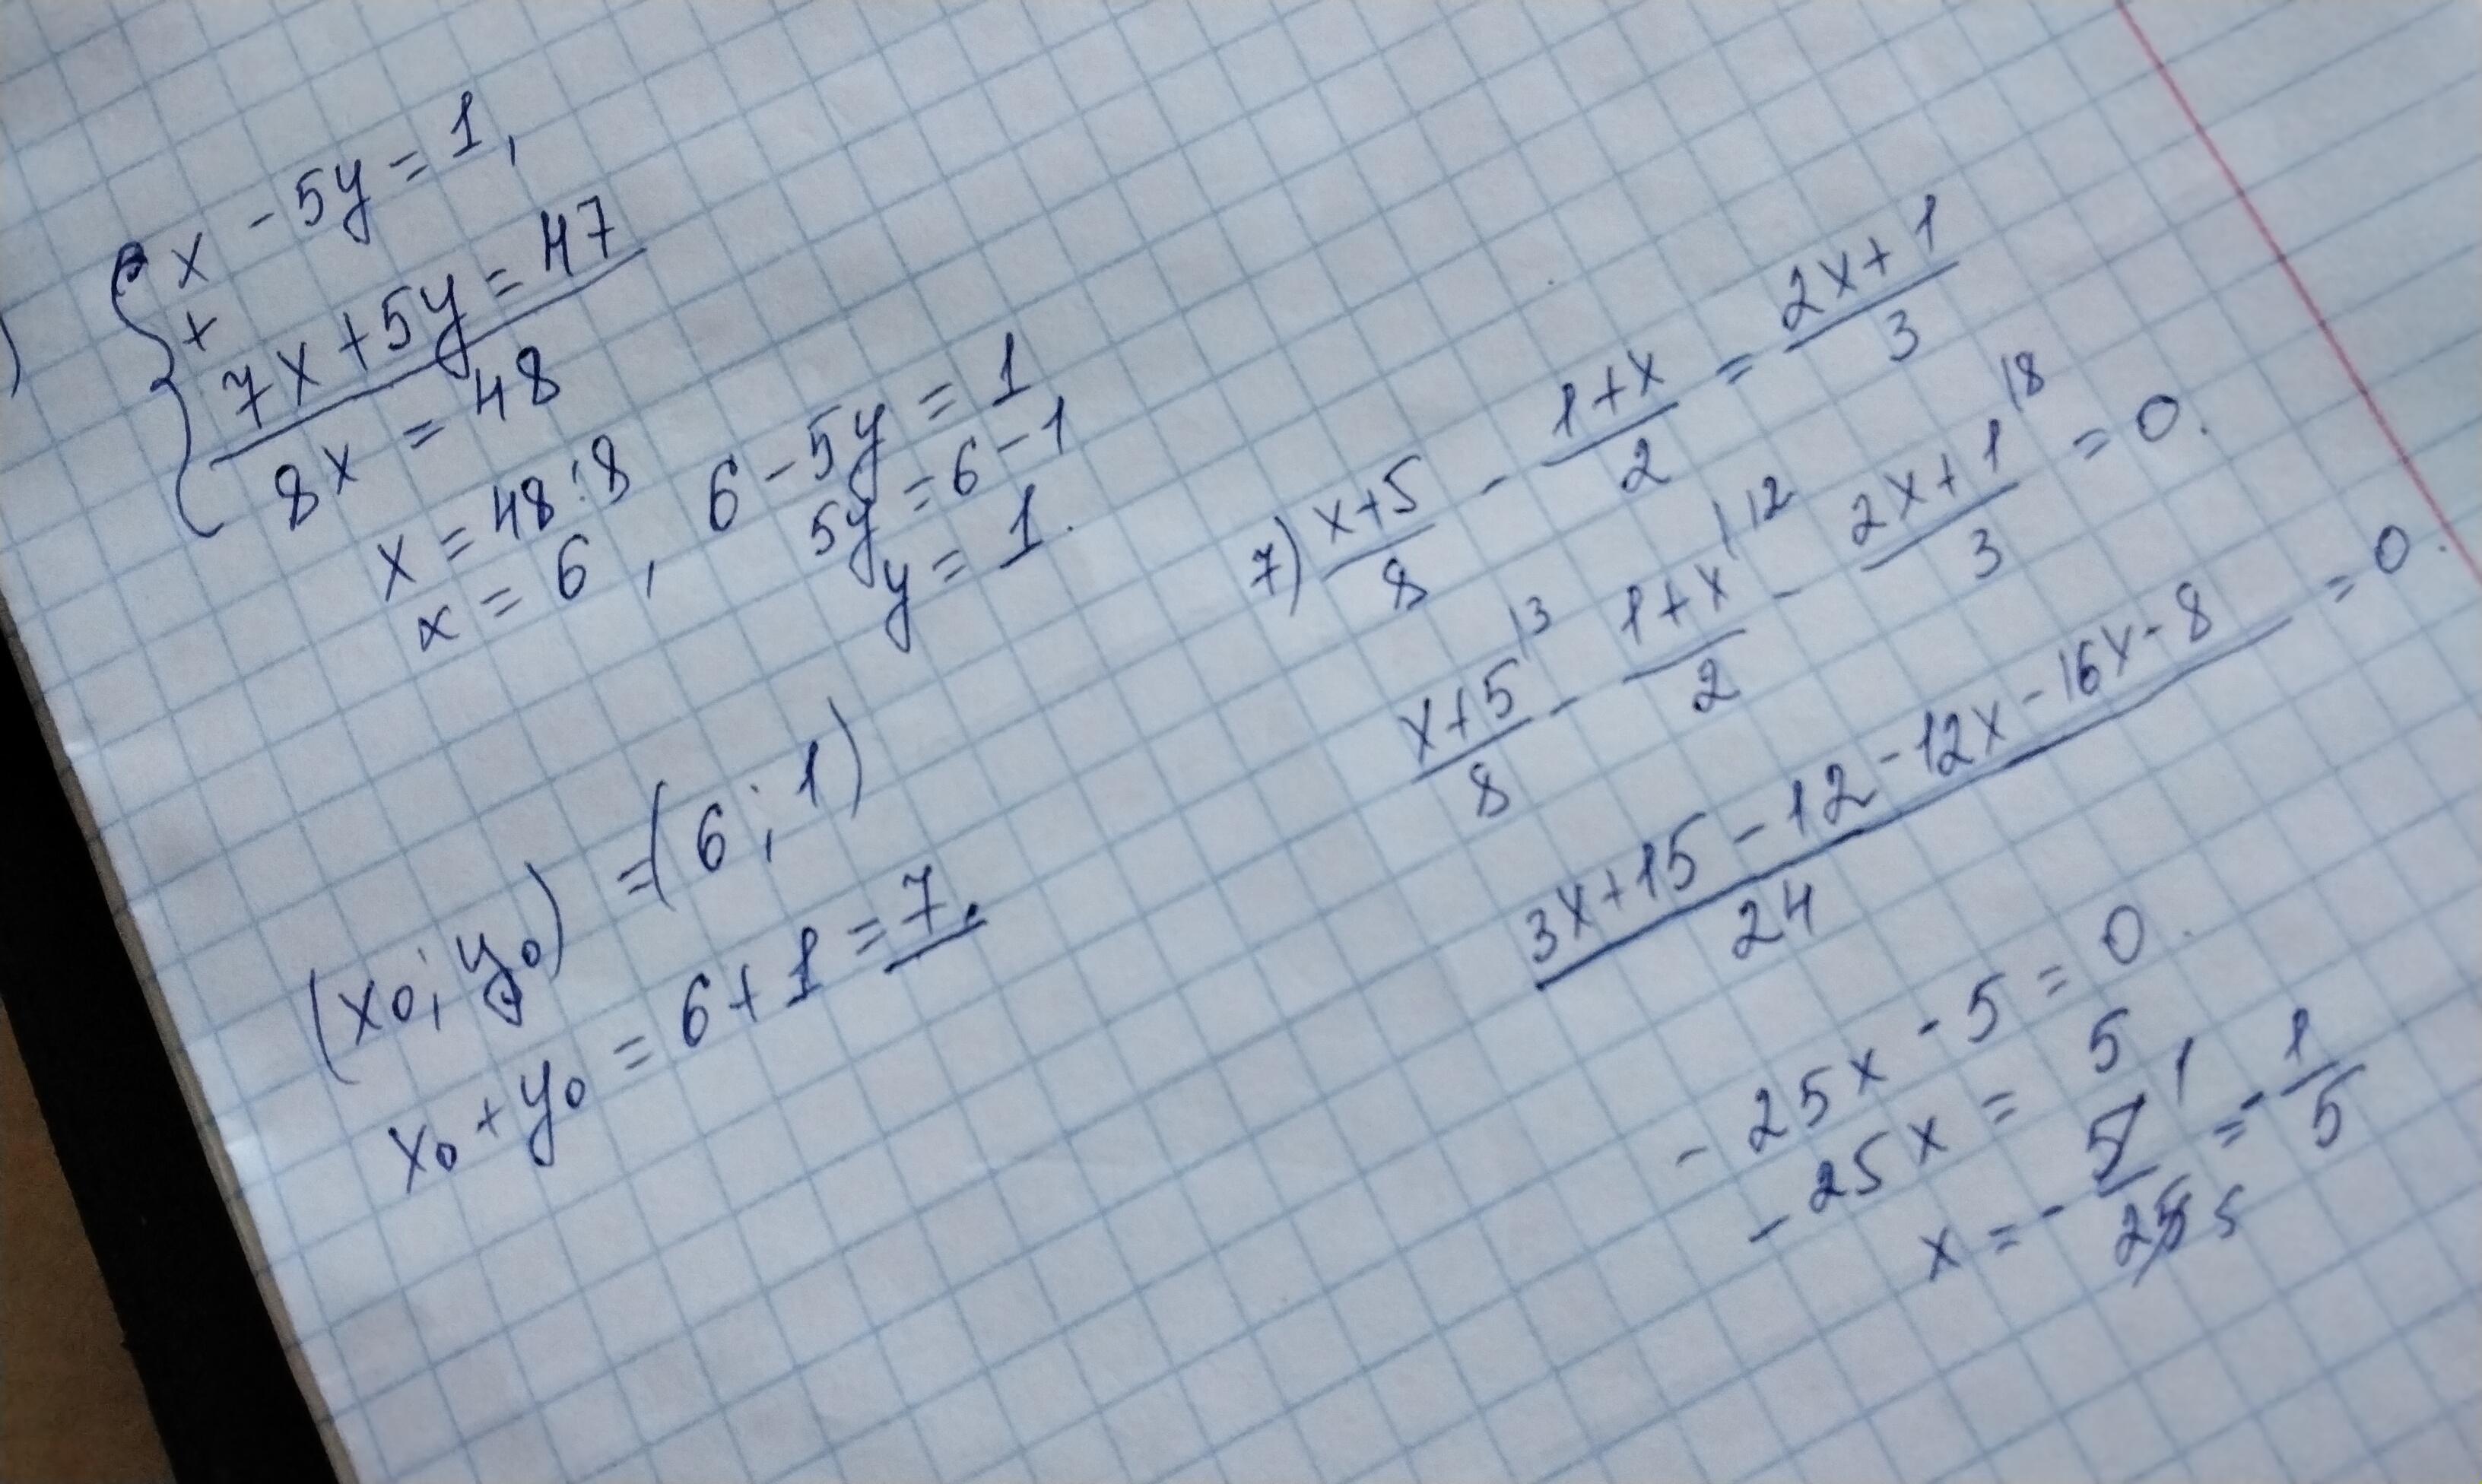 ) { x - 5y = 1,
+
7x + 5y = 47
8x = 48
x = 48 : 8
x = 6 , 6 - 5y = 1
5y = 6 - 1
y = 1.
(x0; y0) = (6; 1)
x0 + y0 = 6 + 1 = 7.
7) x+5/8 - 1+x/2 = 2x+1/3
x+5/8 |3 - 1+x/2 |12 - 2x+1/3 |8 = 0.
3x+15-12-12x-16x-8/24 = 0.
-25x - 5 = 0.
-25x = 5
x = - 5/25 1 5 = - 1/5